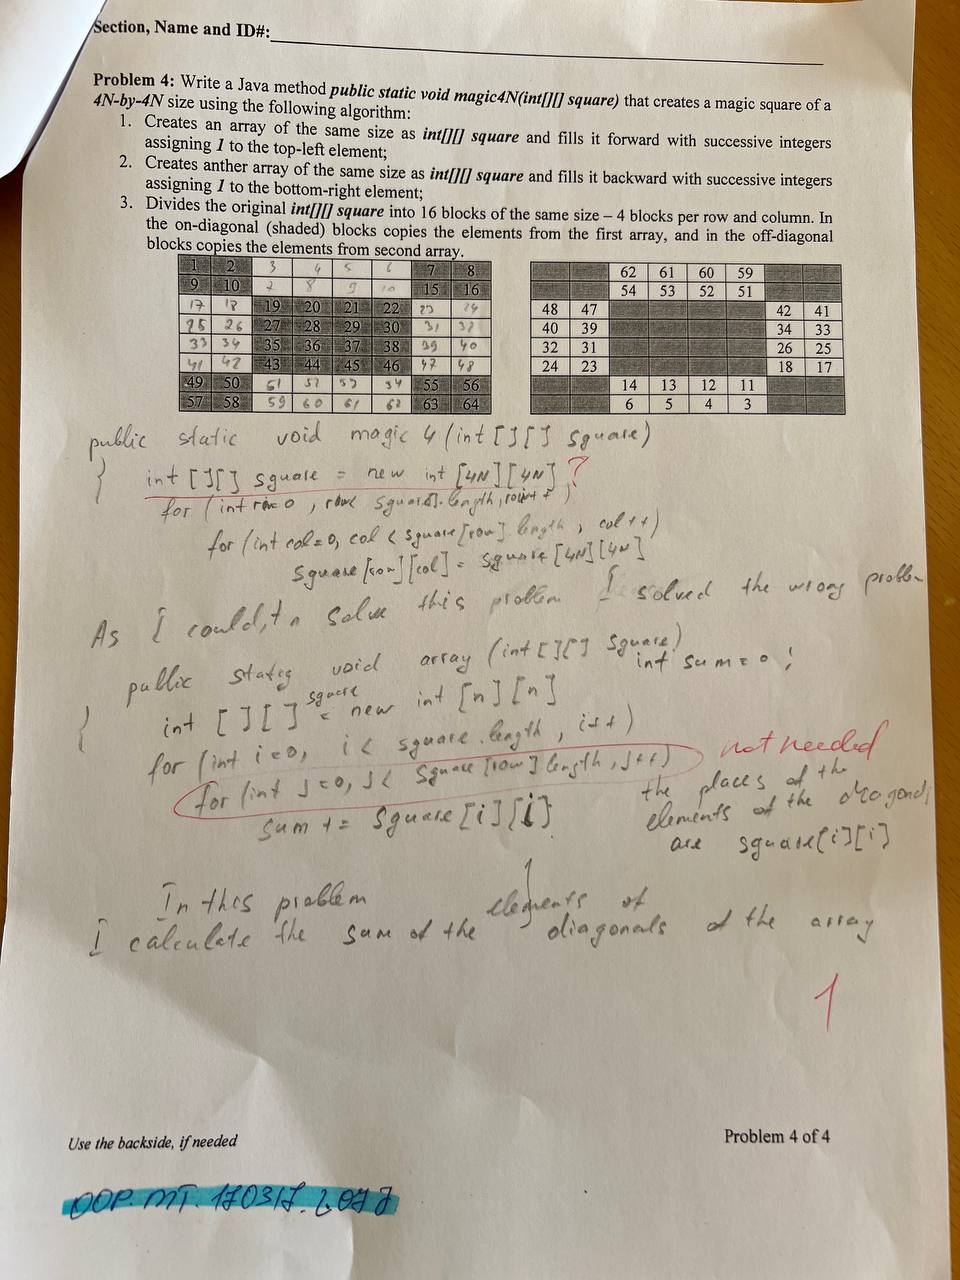 Section, Name and ID#:
Problem 4: Write a Java method public static void magic4N(int[][] square) that creates a magic square of a
4N-by-4N size using the following algorithm:
1. Creates an array of the same size as int[][] square and fills it forward with successive integers
assigning 1 to the top-left element;
2. Creates anther array of the same size as int[][] square and fills it backward with successive integers
assigning 1 to the bottom-right element;
3. Divides the original int[][] square into 16 blocks of the same size – 4 blocks per row and column. In
the on-diagonal (shaded) blocks copies the elements from the first array, and in the off-diagonal
blocks copies the elements from second array.
1 2 3 4 5 6 7 8
9 10 7 8 9 10 15 16
17 18 19 20 21 22 23 24
25 26 27 28 29 30 31 32
33 34 35 36 37 38 39 40
41 42 43 44 45 46 47 48
49 50 51 52 53 54 55 56
57 58 59 60 61 62 63 64
62 61 60 59
54 53 52 51
48 47 42 41
40 39 34 33
32 31 26 25
24 23 18 17
14 13 12 11
6 5 4 3
public static void magic 4 (int [][] square)
{ int [][] square = new int [4N][4N] ?
for (int row=0, row< square[].length, row++)
for (int col=0, col < square[row].length, col++)
square[row][col] = square[4N][4N]
As I could,tn solve this problem I solved the wrong problem
public static void array (int [][] square)
int sum=0;
{ int [][] square = new int [n][n]
for (int i=0, i < square.length, i++)
for (int j=0, j< square[row] length, j++) not needed
sum += square[i][i] the places of the
elements of the diagonal
are square[i][i]
In this problem
I calculate the sum of the elements of diagonals of the array
1
Use the backside, if needed
Problem 4 of 4
OOP.MT. 170317.